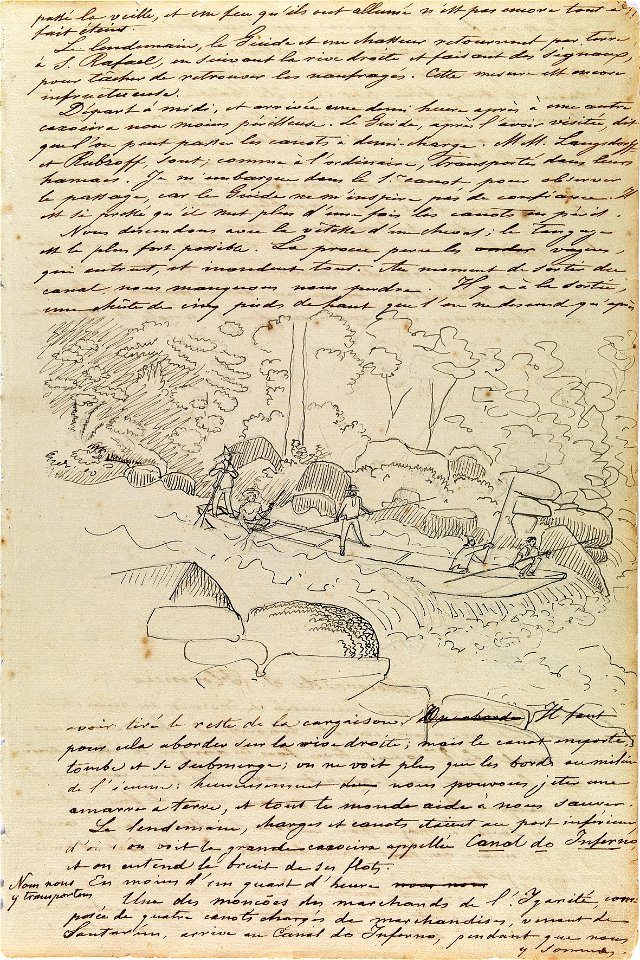 passé la veille, et un feu qu'ils ont allumé n'est pas encore tout à
fait éteint.
Le lendemain, le Guide et un chasseur retournent par terre
à S. Rafael, en suivant la rive droite et faisant des signaux,
pour tâcher de retrouver les naufragés. Cette mesure est encore
infructueuse.
Départ à midi, et arrivée une demi heure après à une autre
caxoeira non moins périlleuse. Le Guide, après l'avoir visitée, dit
que l'on peut passer les canots à demi-charge. M.M. Langsdorff
et Rubzoff, sont, comme à l'ordinaire, transportés dans leurs
hamacs. Je m'embarque dans le 1er canot, pour observer
le passage, car le Guide ne m'inspire pas de confiance. Il
est si pressé qu'il met plus d'une fois les canots en péril.
Nous descendons avec la vitesse d'un cheval; le tangage
est le plus fort possible. La proue perce les vagues
qui entrent, et inondent tout. Au moment de sortir du
canal, nous manquons nous perdre. Il y a à la sortie,
une chûte de cinq pieds de haut que l'on ne descend qu'après
avoir tiré le reste de la cargaison. Il faut
pour cela aborder sur la rive droite; mais le canot emporté,
tombe et se submerge; on ne voit plus que les bords au milieu
de l'écume: heureusement nous pouvons jeter une
amarre à terre, et tout le monde aide à nous sauver.
Le lendemain, charges et canots étaient au port inférieur
d'où on voit la grande caxoeira appellée Canal do Inferno
et on entend le bruit de ses flots.
Nous nous
y transportons
En moins d'un quart d'heure
Une des monções des marchands de l'Igarité, com-
posée de quatre canots chargés de marchandises, venant de
Santarém, arrive au Canal do Inferno, pendant que nous
y sommes.